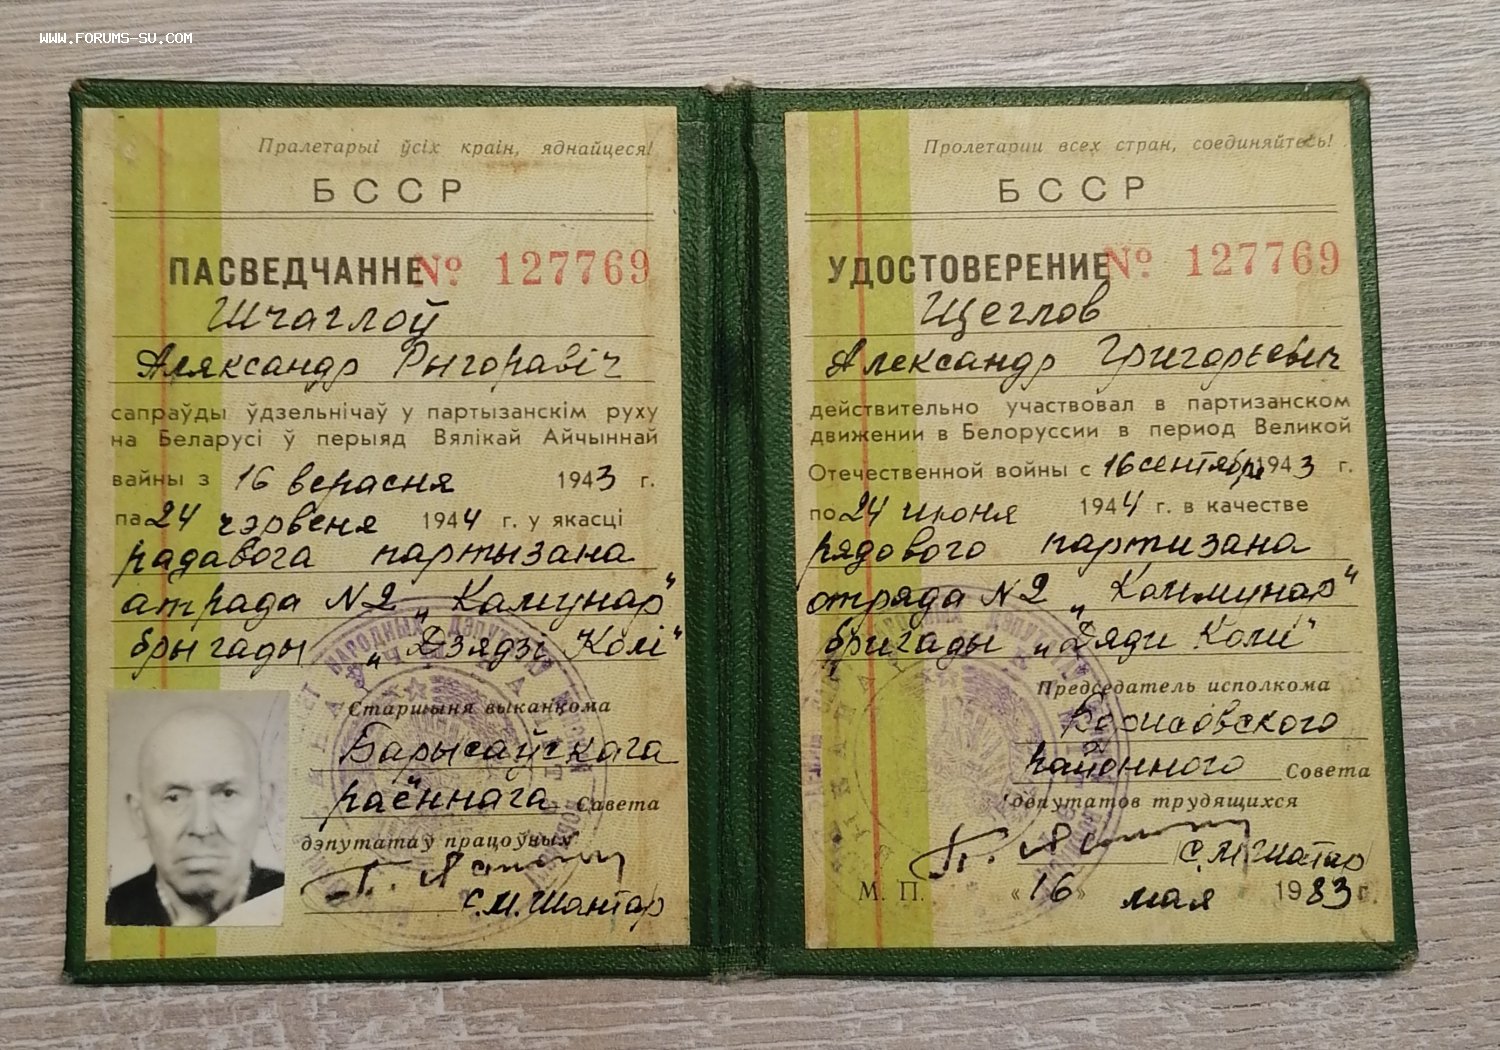 WWW.FORUMS-SU.COM
Пралетарыі ўсіх краін, яднайцеся!
БССР
ПАСВЕДЧАННЕ № 127769
Шчаглоў
Аляксандр Рыгоравіч
сапраўды ўдзельнічаў у партызанскім руху
на Беларусі ў перыяд Вялікай Айчыннай
вайны з 16 верасня 1943 г.
па 24 чэрвеня 1944 г. у якасці
радавога партызана
атрада №2 „Камунар"
брыгады „Дзядзі Колі"
Старшыня выканкома
Барысаўскага
раённага Савета
дэпутатаў працоўных
С.М. Шантар
Пролетарии всех стран, соединяйтесь!
БССР
УДОСТОВЕРЕНИЕ № 127769
Щеглов
Александр Григорьевич
действительно участвовал в партизанском
движении в Белоруссии в период Великой
Отечественной войны с 16 сентября 1943 г.
по 24 июня 1944 г. в качестве
рядового партизана
отряда №2 „Коммунар"
бригады „Дяди Коли"
Председатель исполкома
Борисовского
районного Совета
депутатов трудящихся
С.М. Шантар
М. П. «16» мая 1983 г.